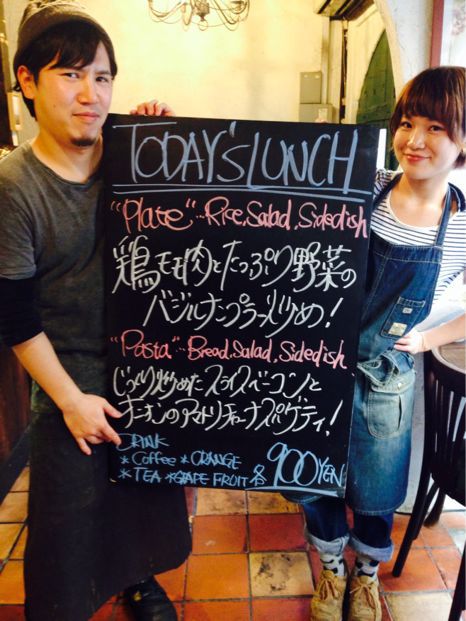 TODAY'S LUNCH
"Plate"…Rice, Salad, Sidedish
鶏モモ肉とたっぷり野菜の
バジルナンプラー炒め!
"Pasta"…Bread, Salad, Sidedish
じっくり炒めたスライスベーコンと
オニオンのアマトリチャーナスパゲティ!
DRINK
*Coffee *ORANGE
*TEA *GRAPE FRUIT 各 900YEN